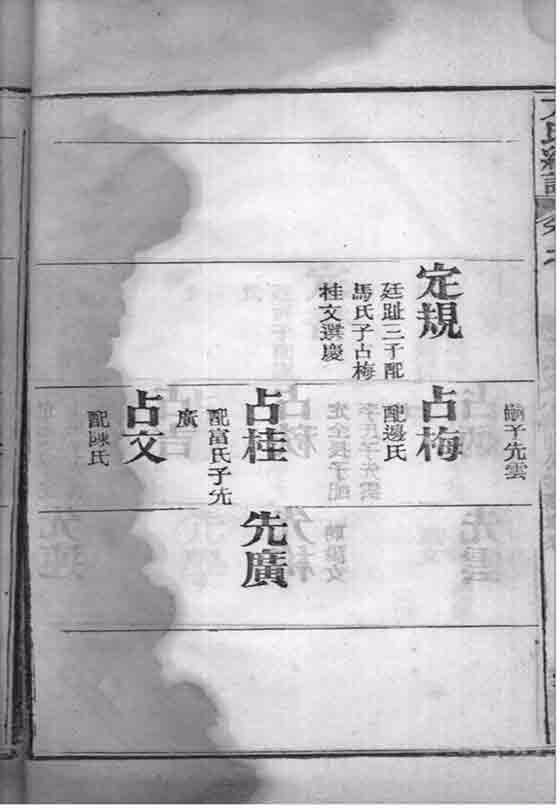 嗣子先雲
定規
廷趾三子配
馬氏子占梅
桂文選慶
占梅
配邊氏
占桂
配富氏子先
廣
先廣
占文
配陳氏